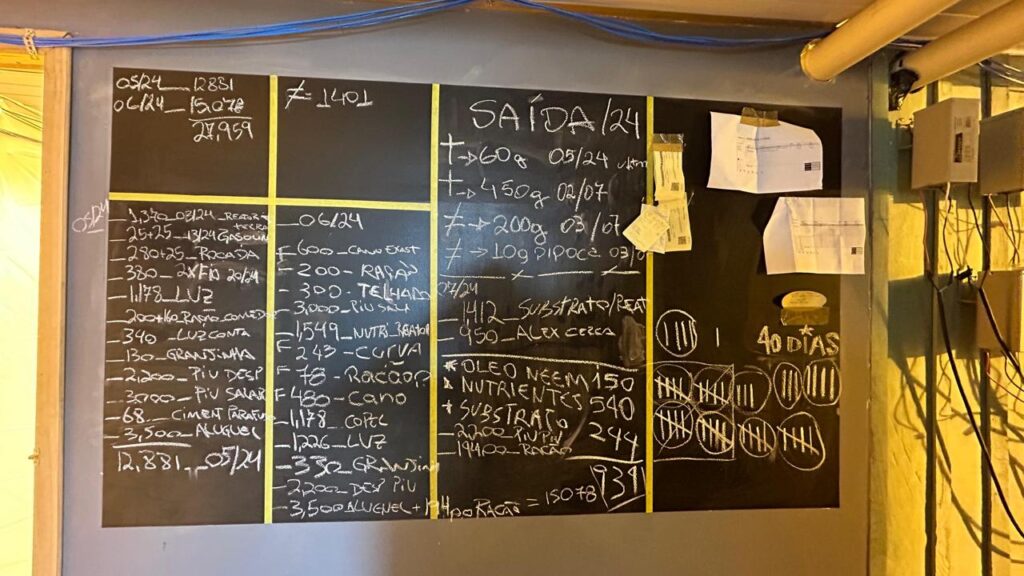 05/24_12881
06/24_15.078
27,959
≠ = 1401
SAÍDA/24
† → 60g 05/24
† → 450g 02/07
≠ → 200g 03/07
≠ → LOG PIPOCA
05/24
1,340_03/24
25+25_13/24 GASOLINA
280+25_ROCADA
380_20/24
1,178_LUZ
200+60
340_LUZ CONTA
130_GRANJINHA
2,200_PIU DESP
3000_PIU
68_CIMENT
3,500_ALUGUEL
12,881_05/24
06/24
F 600_CANO EXAST
F 200_RAÇÃO
300_TELHADO
3,000_PIU SALA
1,549_NUTRI
F 243_CURVA
F 78_RACÃO
F 480_CANO
1,178_COPEL
1,226_LUZ
330_GRANJIN
2,200_DESP PIU
3,500 ALUGUEL + 194 DO RAÇÃO = 15078
07/24
1,412_SUBSTRATO/
950_ALEX CERCA
* OLEO NEEM 150
* NUTRIENTES 540
* SUBSTRATO 244
2,200 PIU
RAÇÃO
934
40 DIAS